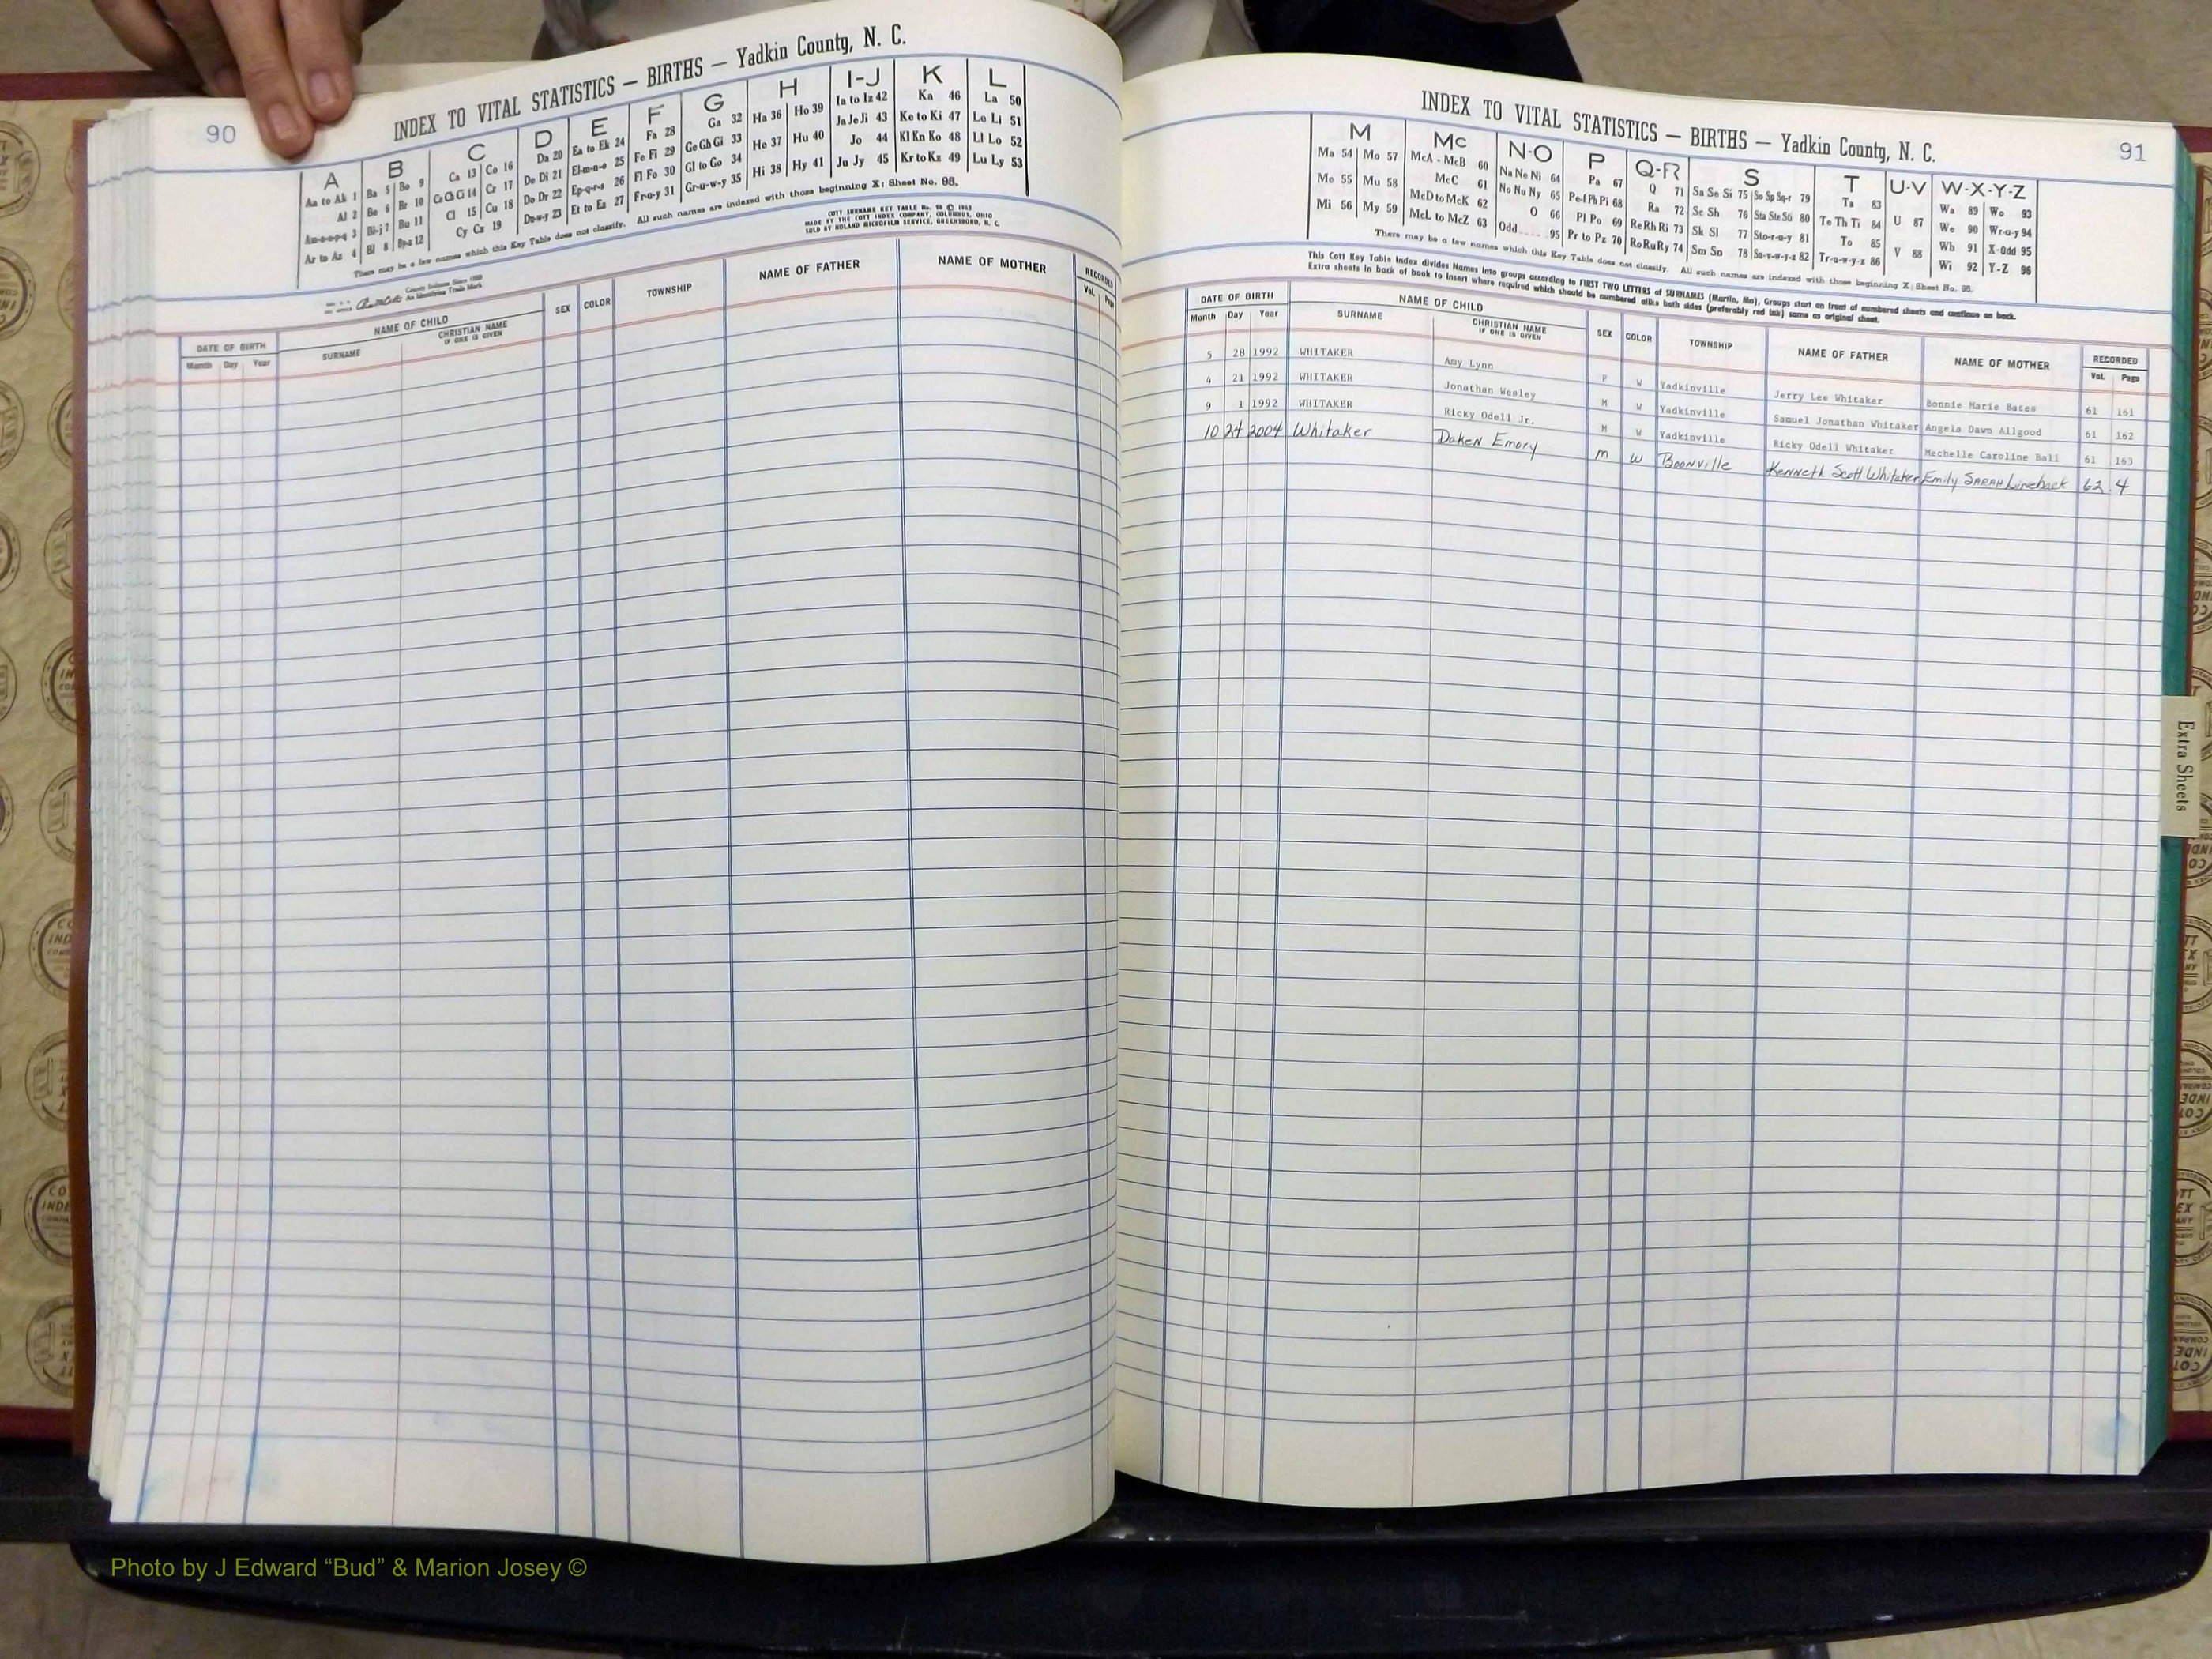 90
INDEX TO VITAL STATISTICS — BIRTHS — Yadkin County, N. C.
A B C D E F G H I-J K L
Aa to Ak 1 Ba 5 Bo 9 Ca 13 Co 16 Da 20 Ea to Ek 24 Fa 28 Ga 32 Ha 36 Ho 39 Ia to Iz 42 Ka 46 La 50
Al 2 Be 6 Br 10 Ce Ch Ci 14 Cr 17 De Di 21 El-m-n-o 25 Fe Fi 29 Ge Gh Gi 33 He 37 Hu 40 Ja Je Ji 43 Ke to Ki 47 Le Li 51
Am-n-o-p-q 3 Bi-j 7 Bu 11 Cl 15 Cu 18 Do Dr 22 Ep-q-r-s 26 Fl Fo 30 Gl to Go 34 Hi 38 Hy 41 Jo 44 Kl Kn Ko 48 Ll Lo 52
Ar to Az 4 Bl 8 By-z 12 Cy Cz 19 Du-w-y 23 Et to Ez 27 Fr-u-y 31 Gr-u-w-y 35 Ju Jy 45 Kr to Kz 49 Lu Ly 53
There may be a few names which this Key Table does not classify. All such names are indexed with those beginning X; Sheet No. 95.
COTT SURNAME KEY TABLE No. 96 © 1953
MADE BY THE COTT INDEX COMPANY, COLUMBUS, OHIO
SOLD BY ROLAND MICROFILM SERVICE, GREENSBORO, N. C.
County Indexes Since 1888
An Identifying Trade Mark
DATE OF BIRTH NAME OF CHILD SEX COLOR TOWNSHIP NAME OF FATHER NAME OF MOTHER RECORDED
Month Day Year SURNAME CHRISTIAN NAME IF ONE IS GIVEN Vol. Page
INDEX TO VITAL STATISTICS — BIRTHS — Yadkin County, N. C.
91
M Mc N-O P Q-R S T U-V W-X-Y-Z
Ma 54 Mo 57 McA - McB 60 Na Ne Ni 64 Pa 67 Q 71 Sa Se Si 75 So Sp Sq-r 79 Ta 83 U 87 Wa 89 Wo 93
Me 55 Mu 58 McC 61 No Nu Ny 65 Pe-f Ph Pi 68 Ra 72 Sc Sh 76 Sta Ste Sti 80 Te Th Ti 84 V 88 We 90 Wr-u-y 94
Mi 56 My 59 McD to McK 62 O 66 Pl Po 69 Re Rh Ri 73 Sk Sl 77 Sto-r-u-y 81 To 85 Wh 91 X-Odd 95
McL to McZ 63 Odd 95 Pr to Pz 70 Ro Ru Ry 74 Sm Sn 78 Su-v-w-y-z 82 Tr-u-w-y-z 86 Wi 92 Y-Z 96
There may be a few names which this Key Table does not classify. All such names are indexed with those beginning X; Sheet No. 95.
This Cott Key Table Index divides Names into groups according to FIRST TWO LETTERS of SURNAMES (Martin, Ma). Groups start on front of numbered sheets and continue on back.
Extra sheets in back of book to insert where required which should be numbered alike both sides (preferably red ink) same as original sheet.
DATE OF BIRTH NAME OF CHILD SEX COLOR TOWNSHIP NAME OF FATHER NAME OF MOTHER RECORDED
Month Day Year SURNAME CHRISTIAN NAME IF ONE IS GIVEN Vol. Page
5 28 1992 WHITAKER Amy Lynn F W Yadkinville Jerry Lee Whitaker Bonnie Marie Bates 61 161
4 21 1992 WHITAKER Jonathan Wesley M W Yadkinville Samuel Jonathan Whitaker Angela Dawn Allgood 61 162
9 1 1992 WHITAKER Ricky Odell Jr. M W Yadkinville Ricky Odell Whitaker Mechelle Caroline Ball 61 163
10 24 2004 Whitaker Daken Emory M W Boonville Kenneth Scott Whitaker Emily Sarah Lineback 62 4
Extra Sheets
Photo by J Edward “Bud” & Marion Josey ©